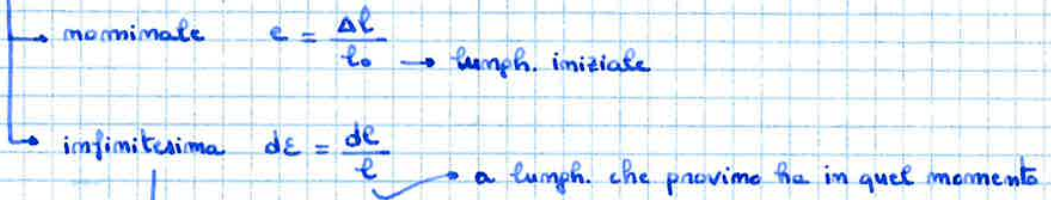 → nominale e = Δl / l₀ → lungh. iniziale
→ infinitesima dε = dl / l → a lungh. che provino ha in quel momento